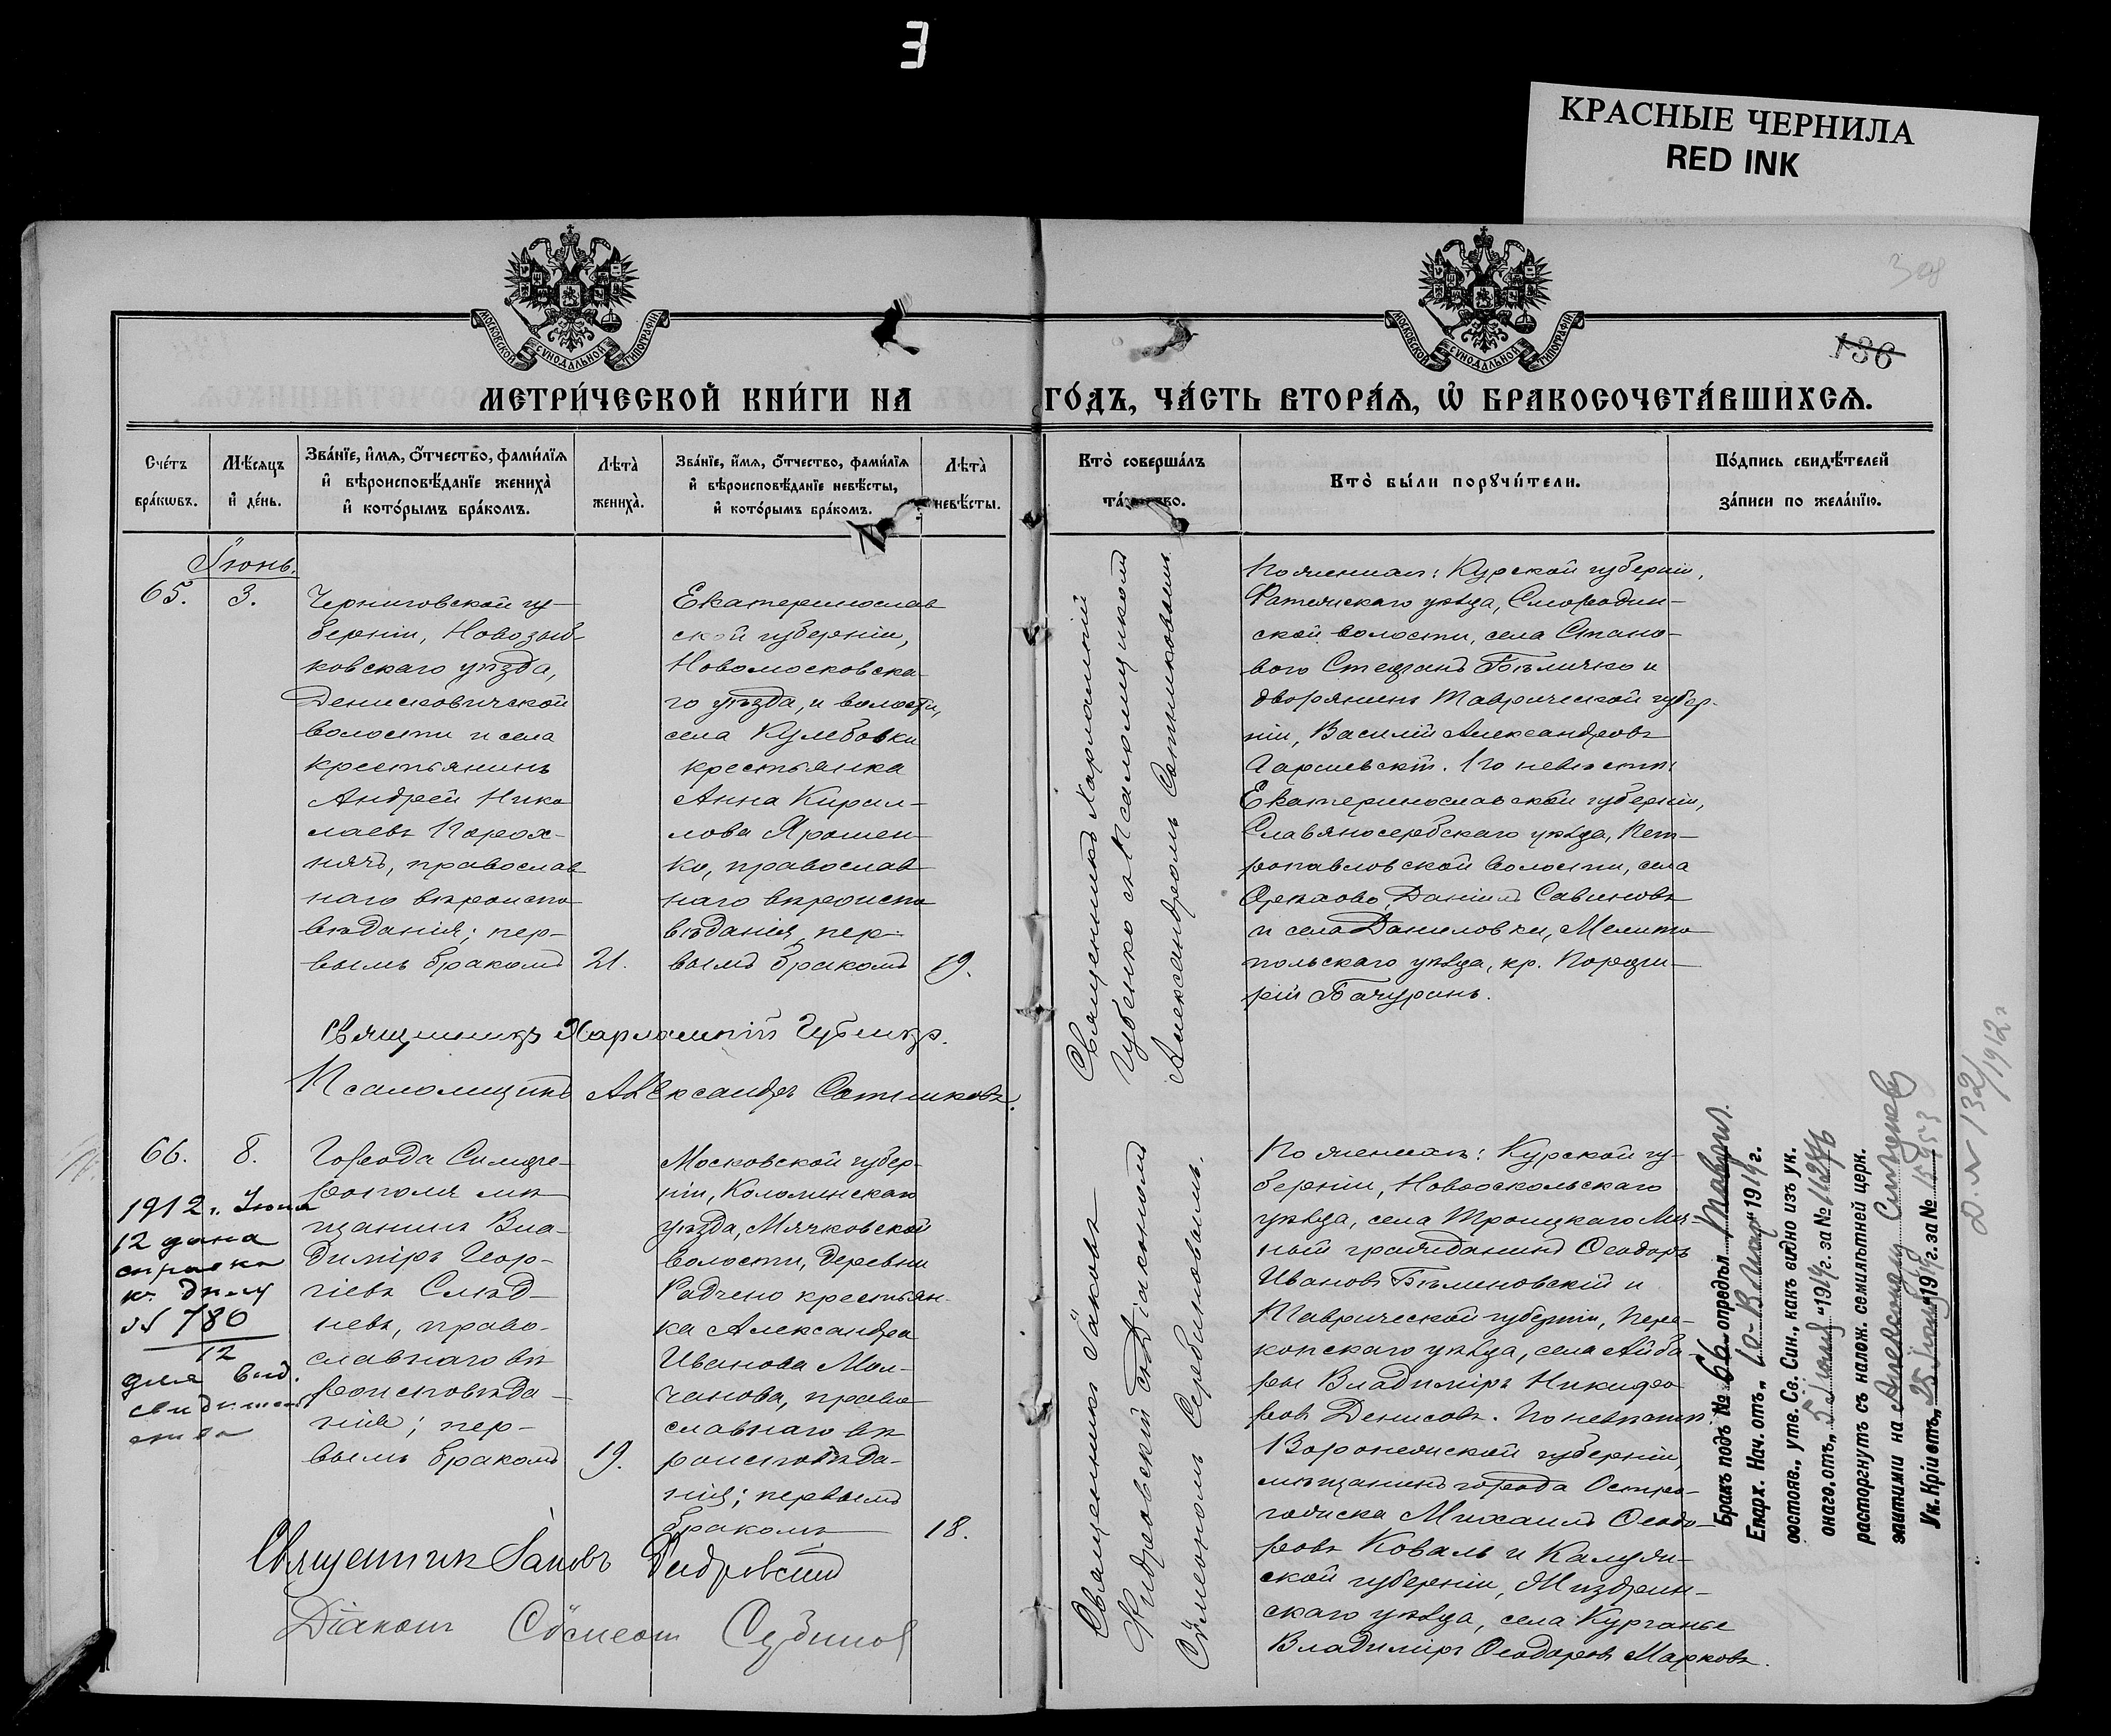 Е
КРАСНЫЕ ЧЕРНИЛА
RED INK
МОСКОВСКОЙ СѴНОДАЛЬНОЙ ТИПОГРАФІИ
МОСКОВСКОЙ СѴНОДАЛЬНОЙ ТИПОГРАФІИ
136
МЕТРИ́ЧЕСКОЙ КНИ́ГИ НА ГО́ДЪ, ЧА́СТЬ ВТОРА́Я, Ѡ БРАКОСОЧЕТА́ВШИХСЯ.
Сче́тъ бра́кѡвъ.
Мѣ́сяцъ и҆ де́нь.
Зва́нїе, и҆́мя, ѻ҆́тчество, фами́лїя
и҆ вѣроисповѣ́данїе жениха̀
и҆ кото́рымъ бра́комъ.
Лѣта̀ жениха̀.
Зва́нїе, и҆́мя, ѻ҆́тчество, фами́лїя
и҆ вѣроисповѣ́данїе невѣ́сты,
и҆ кото́рымъ бра́комъ.
Лѣта̀ невѣ́сты.
Кто̀ соверша́лъ
Кто̀ бы́ли порꙋчи́тели.
По́дпись свидѣ́телей
за́писи по жела́нїю.
Іюнь.
65.
3.
Черниговской гу-
берніи, Новозыб-
ковскаго уѣзда,
Денисковичской
волости и села
крестьянинъ
Андрей Нико
лаевъ Порох-
нячъ, православ
наго вѣроиспо
вѣданія; пер-
вымъ бракомъ
21.
Екатеринослав
ской губерніи,
Новомосковска-
го уѣзда, и волости,
села Кулебовки
крестьянка
Анна Кирил-
лова Ярошен-
ко, православ
наго вѣроиспо
вѣданія, пер-
вымъ бракомъ
19.
Священникъ Харлампій
Губенко съ Псаломщикомъ
Александромъ Сотниковымъ.
По женихѣ: Курской губерніи,
Фатежскаго уѣзда, Смородин-
ской волости, села Стано-
вого Стефанъ Бѣличко и
дворянинъ Таврической губер-
ніи, Василій Александровъ
По невѣстѣ:
Екатеринославской губерніи,
Славяносербскаго уѣзда, Пет-
ропавловской волости, села
Орѣхово, Даніилъ Савиновъ
и села Даниловки, Мелито
польскаго уѣзда, кр. Порфи-
рій Бачуринъ.
Священникъ Харлампій Губенко.
Псаломщикъ Александръ Сотниковъ.
66.
8.
Города Симфе-
рополя мѣ
щанинъ Вла-
диміръ Геор-
гіевъ Слѣд-
невъ, право-
славнаго вѣ
роисповѣда-
нія; пер-
вымъ бракомъ
19.
1912 г. Іюня
12 дана
справка
къ дѣлу
№ 780
12
для выд.
свидѣтель
ства
Московской губер-
ніи, Коломенскаго
уѣзда, Мячковской
волости, деревни
крестьян-
ка Александра
Иванова Мол-
чанова, право
славнаго вѣ
роисповѣда-
нія; первымъ
бракомъ
18.
Священникъ Іаковъ
съ Діакономъ
Сѵмеономъ Серединовымъ.
По женихѣ: Курской гу-
берніи, Новооскольскаго
уѣзда, села Троицкаго Лич-
ный гражданинъ Ѳеодоръ
Ивановъ Бѣленовскій и
Таврической губерніи, Пере-
копскаго уѣзда, села Айба-
ры Владиміръ Никифо
ровъ Денисовъ. По невѣстѣ:
Воронежской губерніи,
мѣщанинъ города Остро-
гожска Михаилъ Ѳеодо-
ровъ Коваль и Калуж-
ской губерніи,
скаго уѣзда, села Курганье
Владиміръ Ѳеодоровъ Марковъ.
Священникъ Іаковъ
Діаконъ Сѵмеонъ
Бракъ подъ № 66 опредѣл. Таврич.
Епарх. Нач. отъ 1914 г.
состояв., утв. Св. Син., какъ видно изъ ук.
онаго, отъ „5 1914 г. за № 11276
расторгнутъ съ налож. семилѣтней церк.
эпитиміи на Александру Слѣдневу
Ук. Кр іи отъ „25 1914 г. за № 15953
Д. № 132/1912 г.